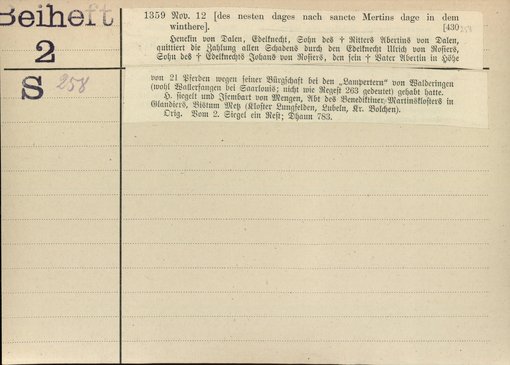 Beiheft
2
S 258
1359 Nov. 12 [des nesten dages nach sancte Mertins dage in dem
winthere]. [430
258
Henekin von Dalen, Edelknecht, Sohn des † Ritters Abertins von Dalen,
quittiert die Zahlung allen Schadens durch den Edelknecht Ulrich von Rosiers,
Sohn des † Edelknechts Johans von Rosiers, den sein † Vater Abertin in Höhe
von 21 Pferden wegen seiner Bürgschaft bei den „Lampertern“ von Walderingen
(wohl Wallerfangen bei Saarlouis; nicht wie Regest 263 gedeutet) gehabt hatte.
H. siegelt und Isembart von Mengen, Abt des Benediktiner-Martinsklosters in
Glandiers, Bistum Metz (Kloster Lungfelden, Lubeln, Kr. Bolchen).
Orig. Vom 2. Siegel ein Rest; Dhaun 783.